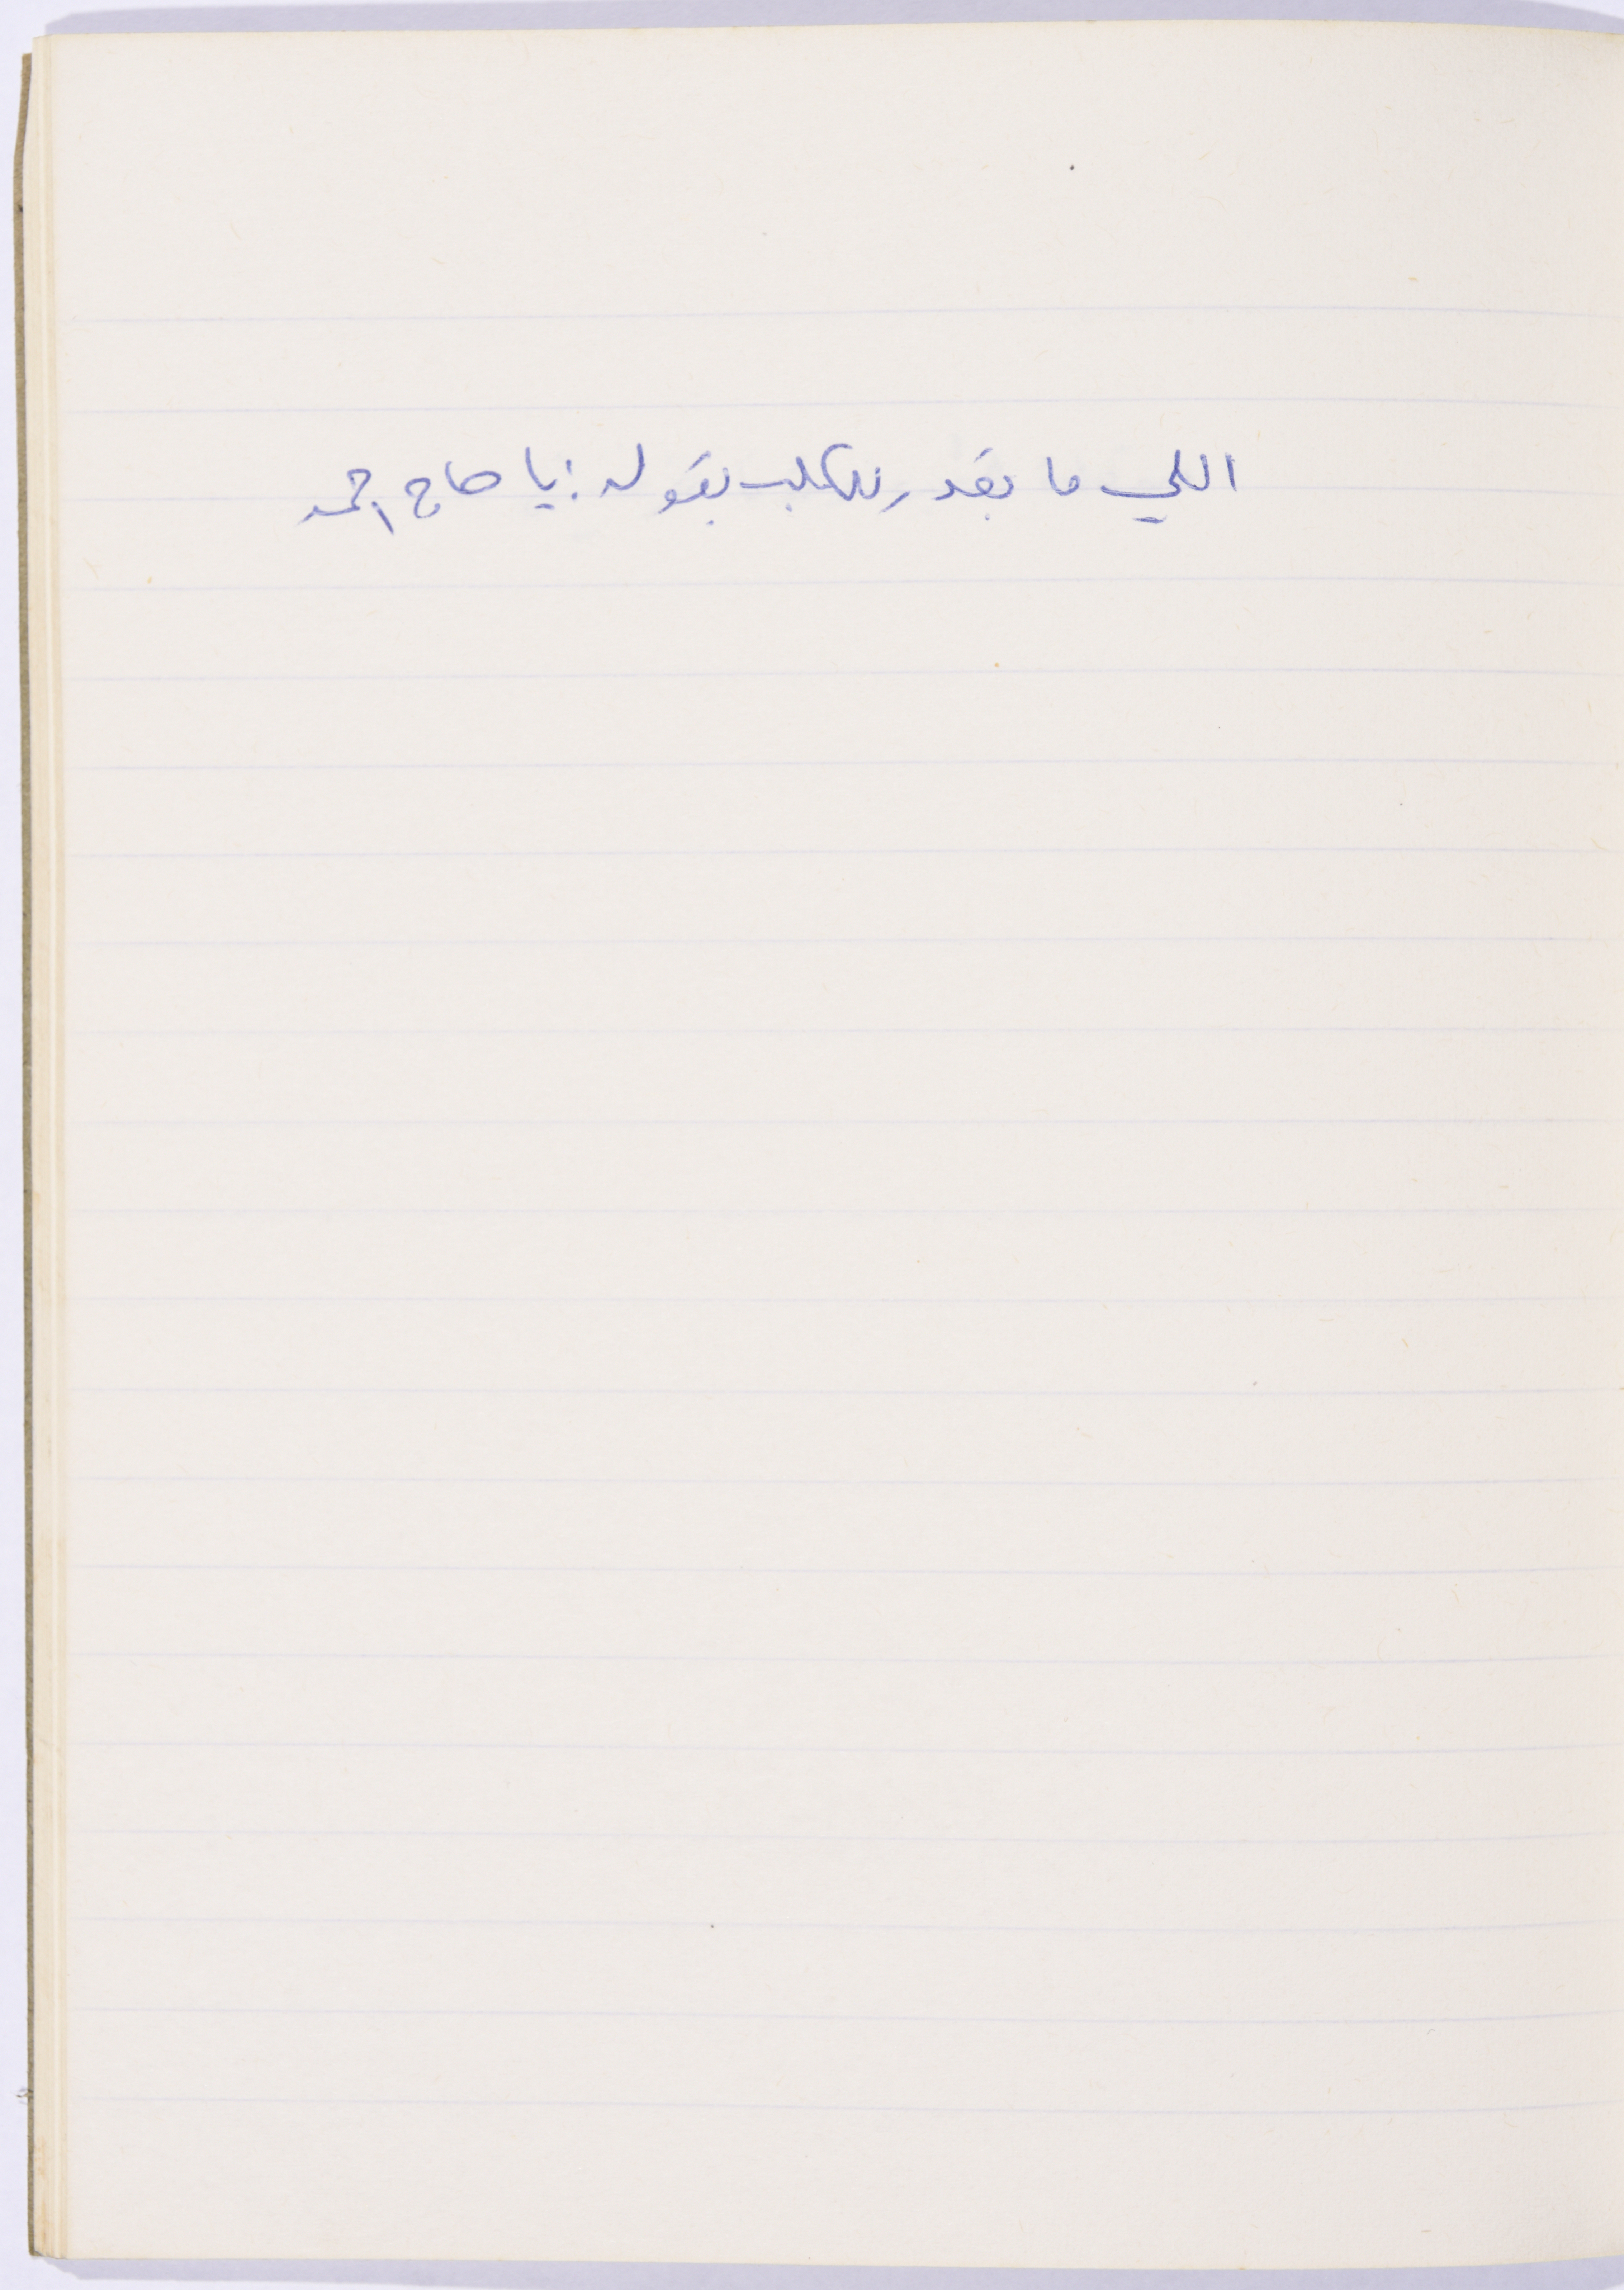 اللي ما بقدر للكلب بقوله: يا حاج احمد